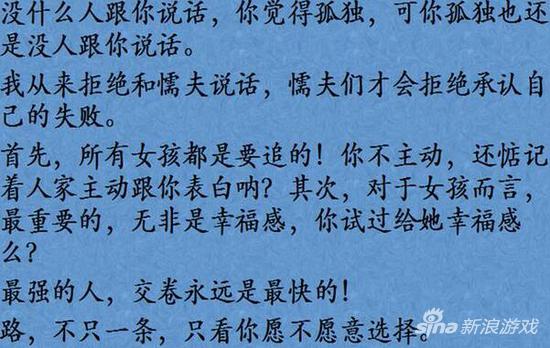 没什么人跟你说话，你觉得孤独，可你孤独也还
是没人跟你说话。
我从来拒绝和懦夫说话，懦夫们才会拒绝承认自
己的失败。
首先，所有女孩都是要追的！你不主动，还惦记
着人家主动跟你表白呐？其次，对于女孩而言，
最重要的，无非是幸福感，你试过给她幸福感
么？
最强的人，交卷永远是最快的！
路，不只一条，只看你愿不愿意选择。
sina新浪游戏